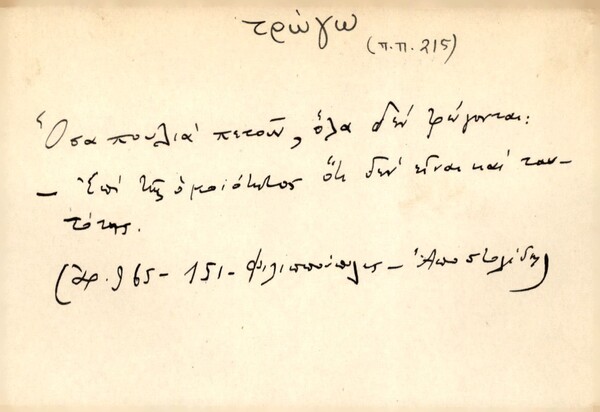 τρώγω
(π.π. 215)
Ὅσα πουλιὰ πετοῦν, ὅλα δὲν τρώγονται:
— Ἐπὶ τῆς ὁμοιότητος ὅτι δὲν εἶναι καὶ ταυ-
τότης.
965 - 151 - Φιλιππούπολις - Ἀποστολίδης)